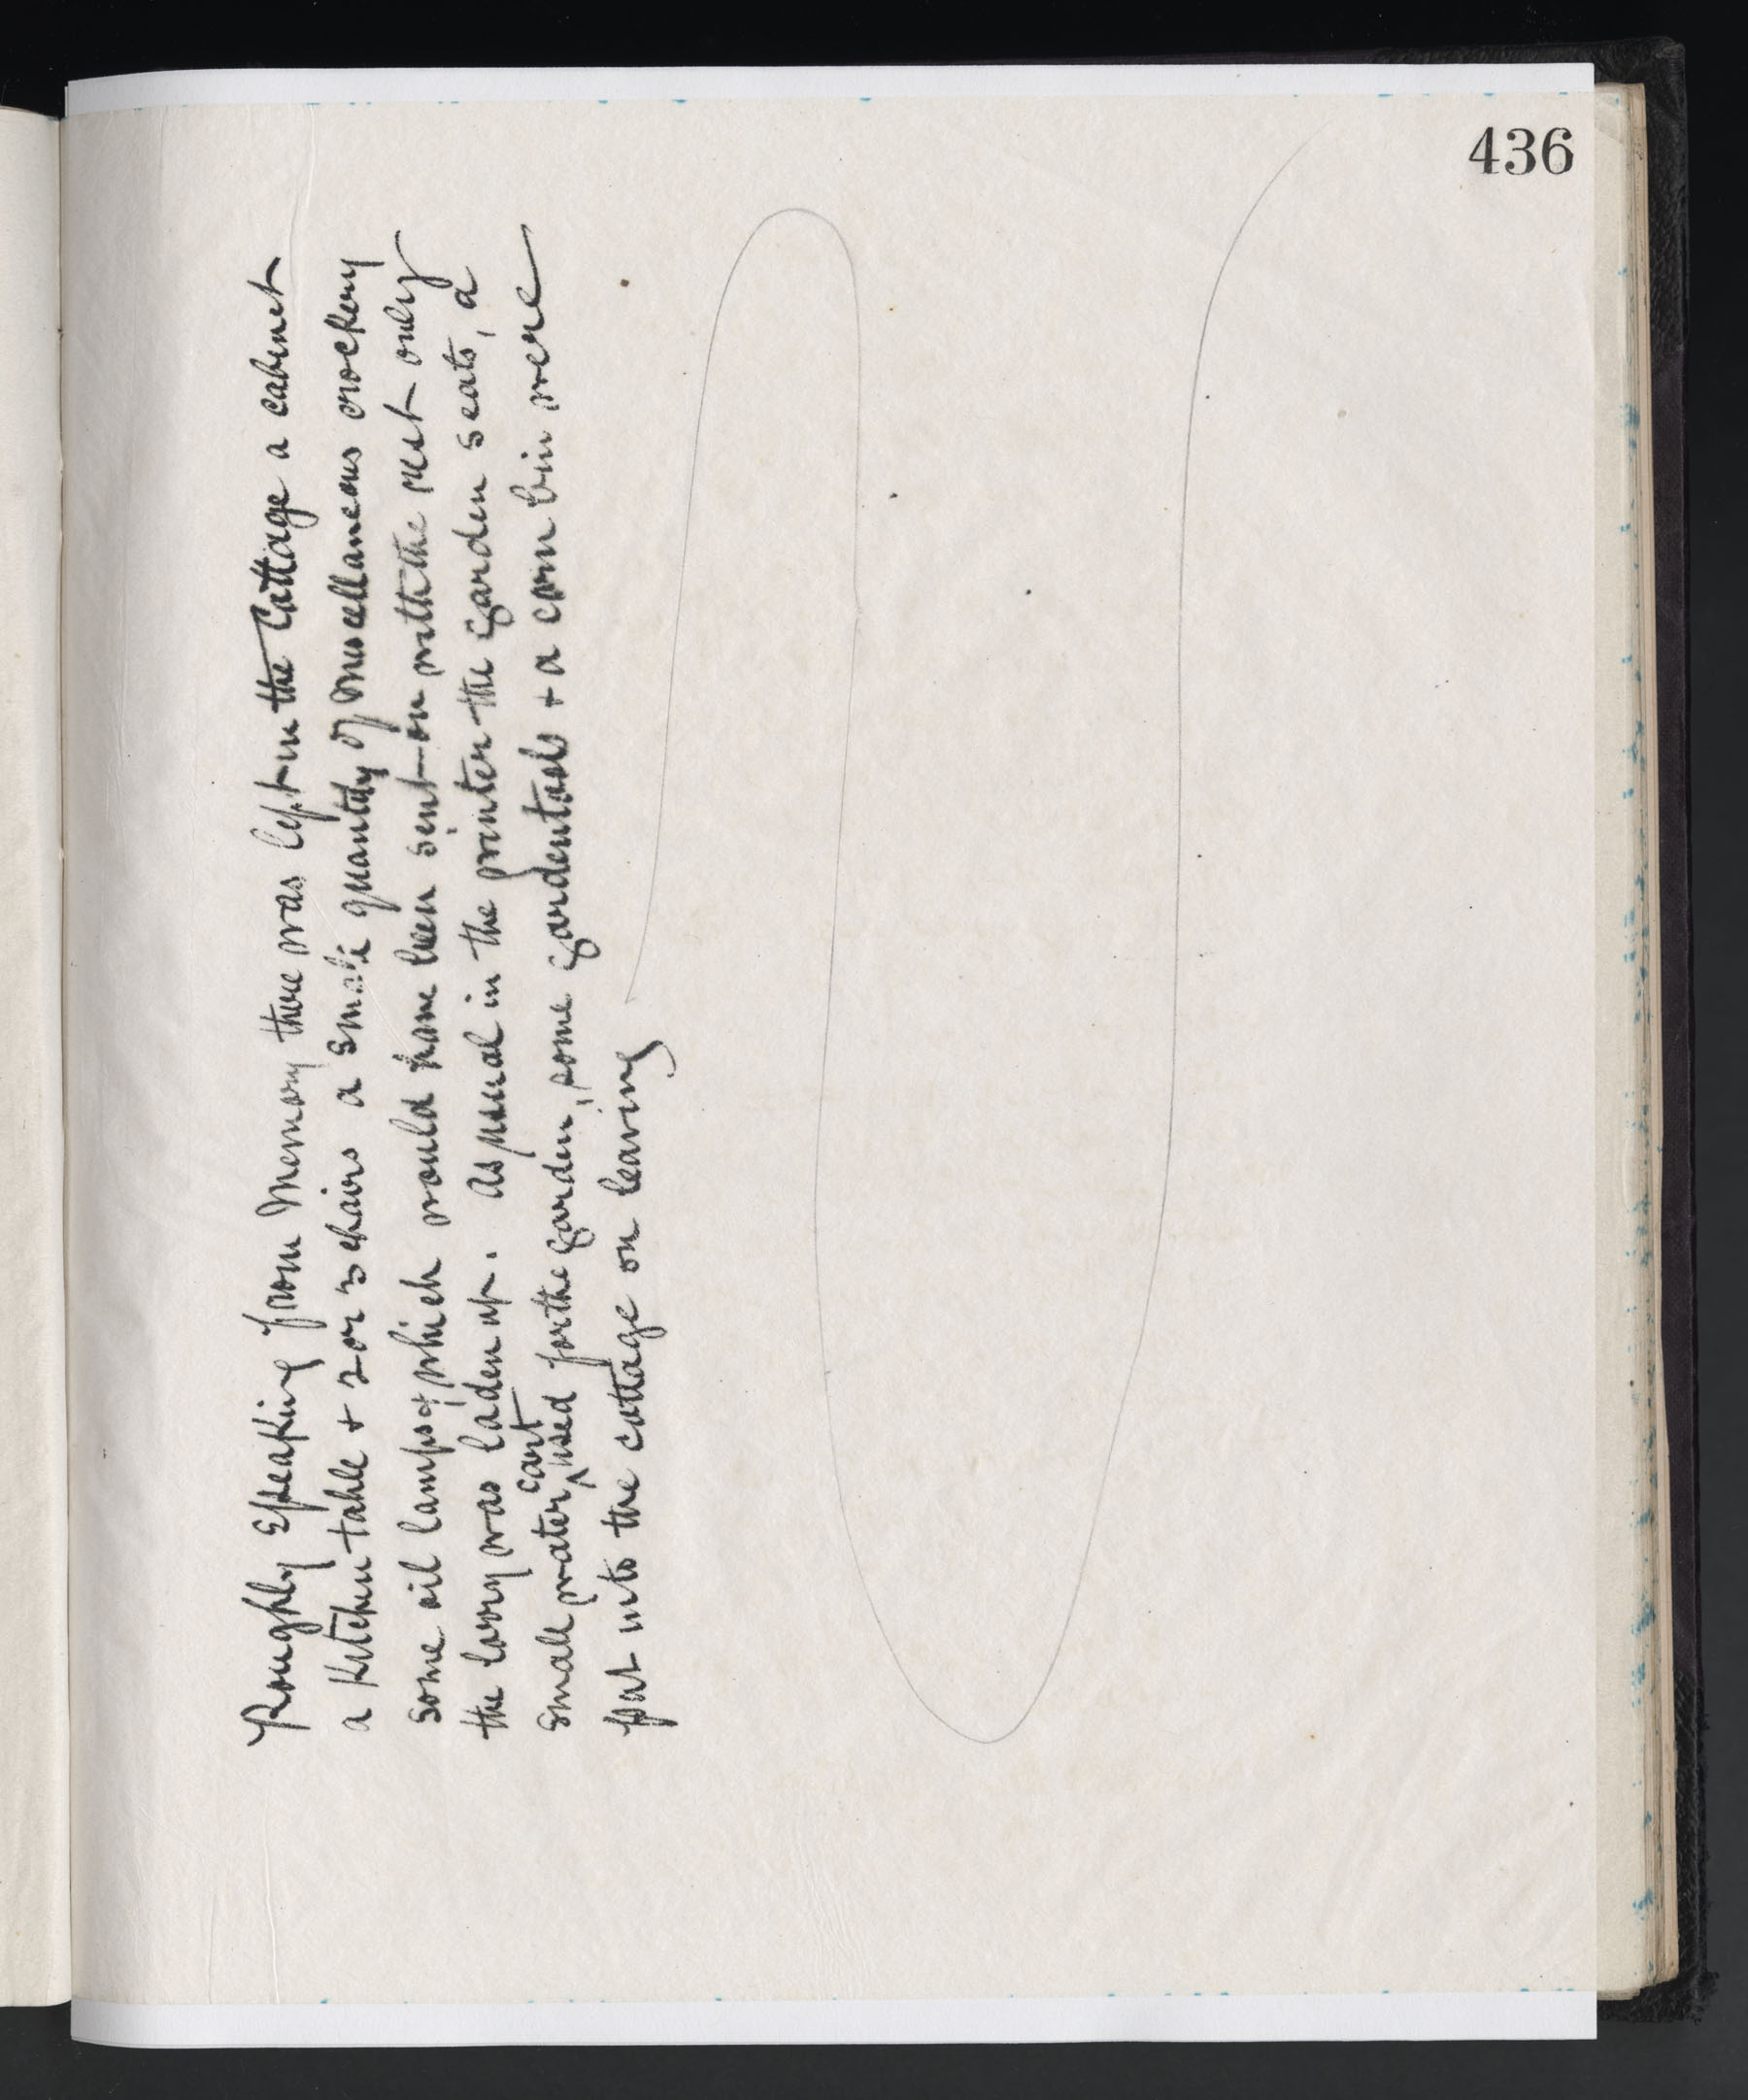 436
Roughly Speaking from Memory there was left in the Cottage a cabinet
a Kitchen table + 2 or 3 chairs a small quantity of Miscellaneous crockery
some oil lamps & which would have been sent on with the rest only
the lorry was laden up. As usual in the winter the garden seats, a
small water ^cart used for the garden, some garden tools + a corn bin were
put into the cottage on leaving